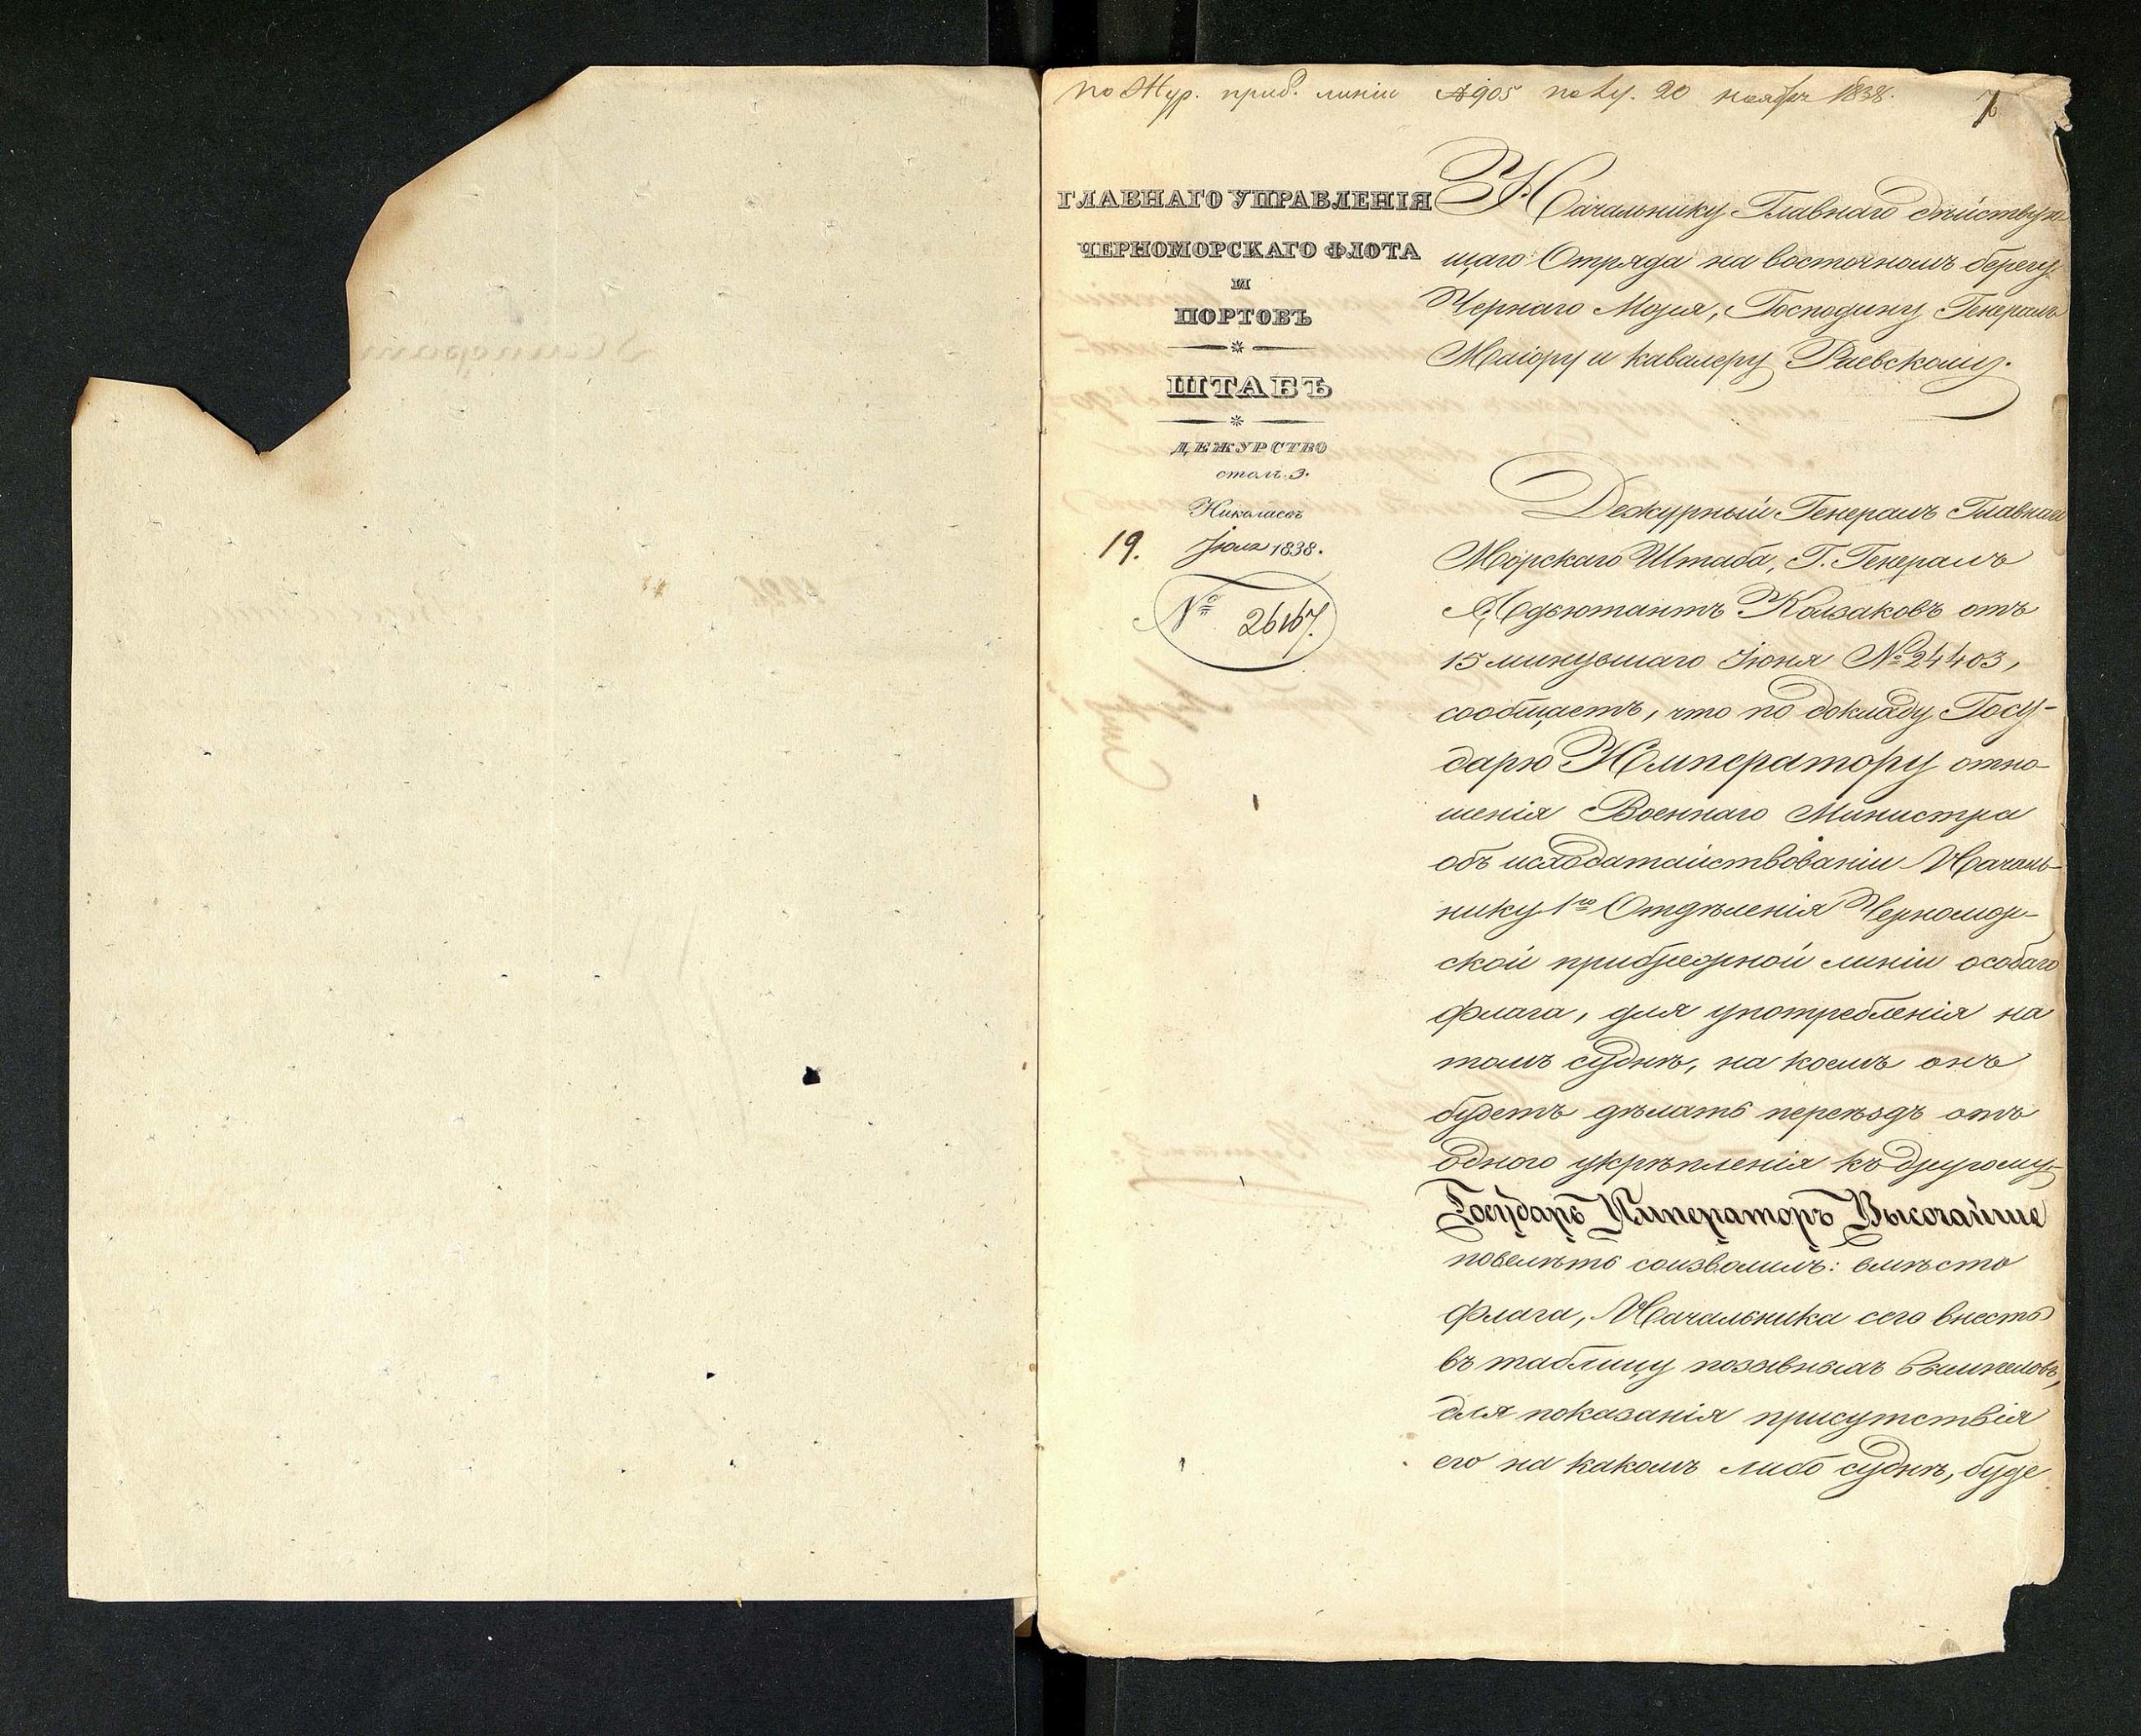 по Жур. приб. линіи №905 пол. 20 ноября 1838.
7
ГЛАВНАГО УПРАВЛЕНІЯ
ЧЕРНОМОРСКАГО ФЛОТА
И
ПОРТОВЪ
ШТАБЪ
ДЕЖУРСТВО
столъ 3.
Николаевъ
19. Іюля 1838.
№ 26167.
Начальнику Главнаго дѣйствую
щаго Отряда на восточномъ берегу
Чернаго Моря, Господину Генералъ
Маіору и кавалеру Раевскому.
Дежурный Генералъ Главнаго
Морскаго Штаба, Г. Генералъ
Адъютантъ Колзаковъ отъ
15 минувшаго Іюня № 24403,
сообщаетъ, что по докладу Госу-
дарю Императору отно-
шенія Военнаго Министра
объ исходатайствованіи Началь-
нику 1го Отдѣленія Черномор-
ской прибрежной линіи особаго
флага, для употребленія на
томъ суднѣ, на коемъ онъ
будетъ дѣлать переѣздъ отъ
одного укрѣпленія къ другому,
Государь Императоръ Высочайше
повелѣть соизволилъ: вмѣсто
флага, Начальника сего внесть
въ таблицу позывныхъ вымпеловъ,
для показанія присутствія
его на какомъ либо суднѣ, буде